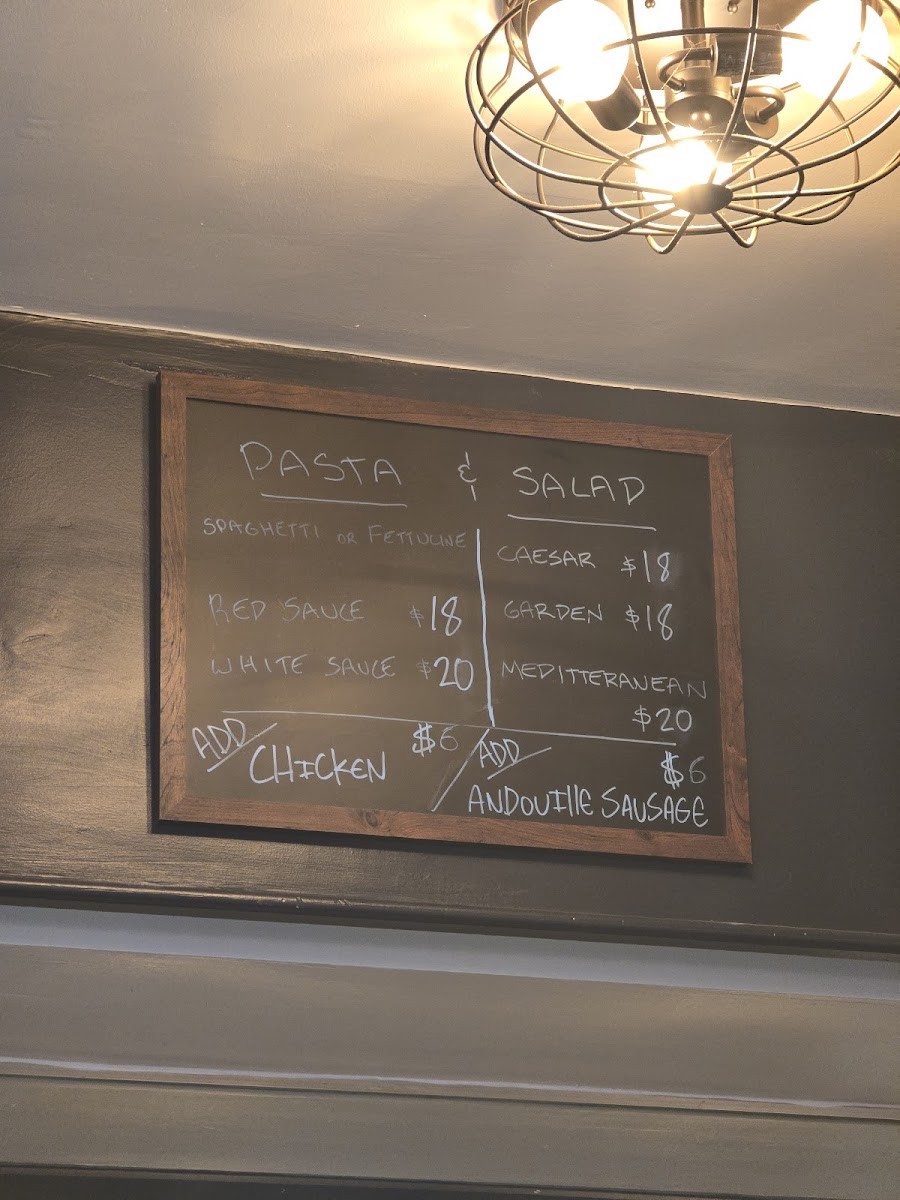 PASTA & SALAD
SPAGHETTI OR FETTUCINE
RED SAUCE $18
WHITE SAUCE $20
CAESAR $18
GARDEN $18
MEDITTERANEAN
$20
ADD $6
CHICKEN
ADD $6
ANDOUILLE SAUSAGE